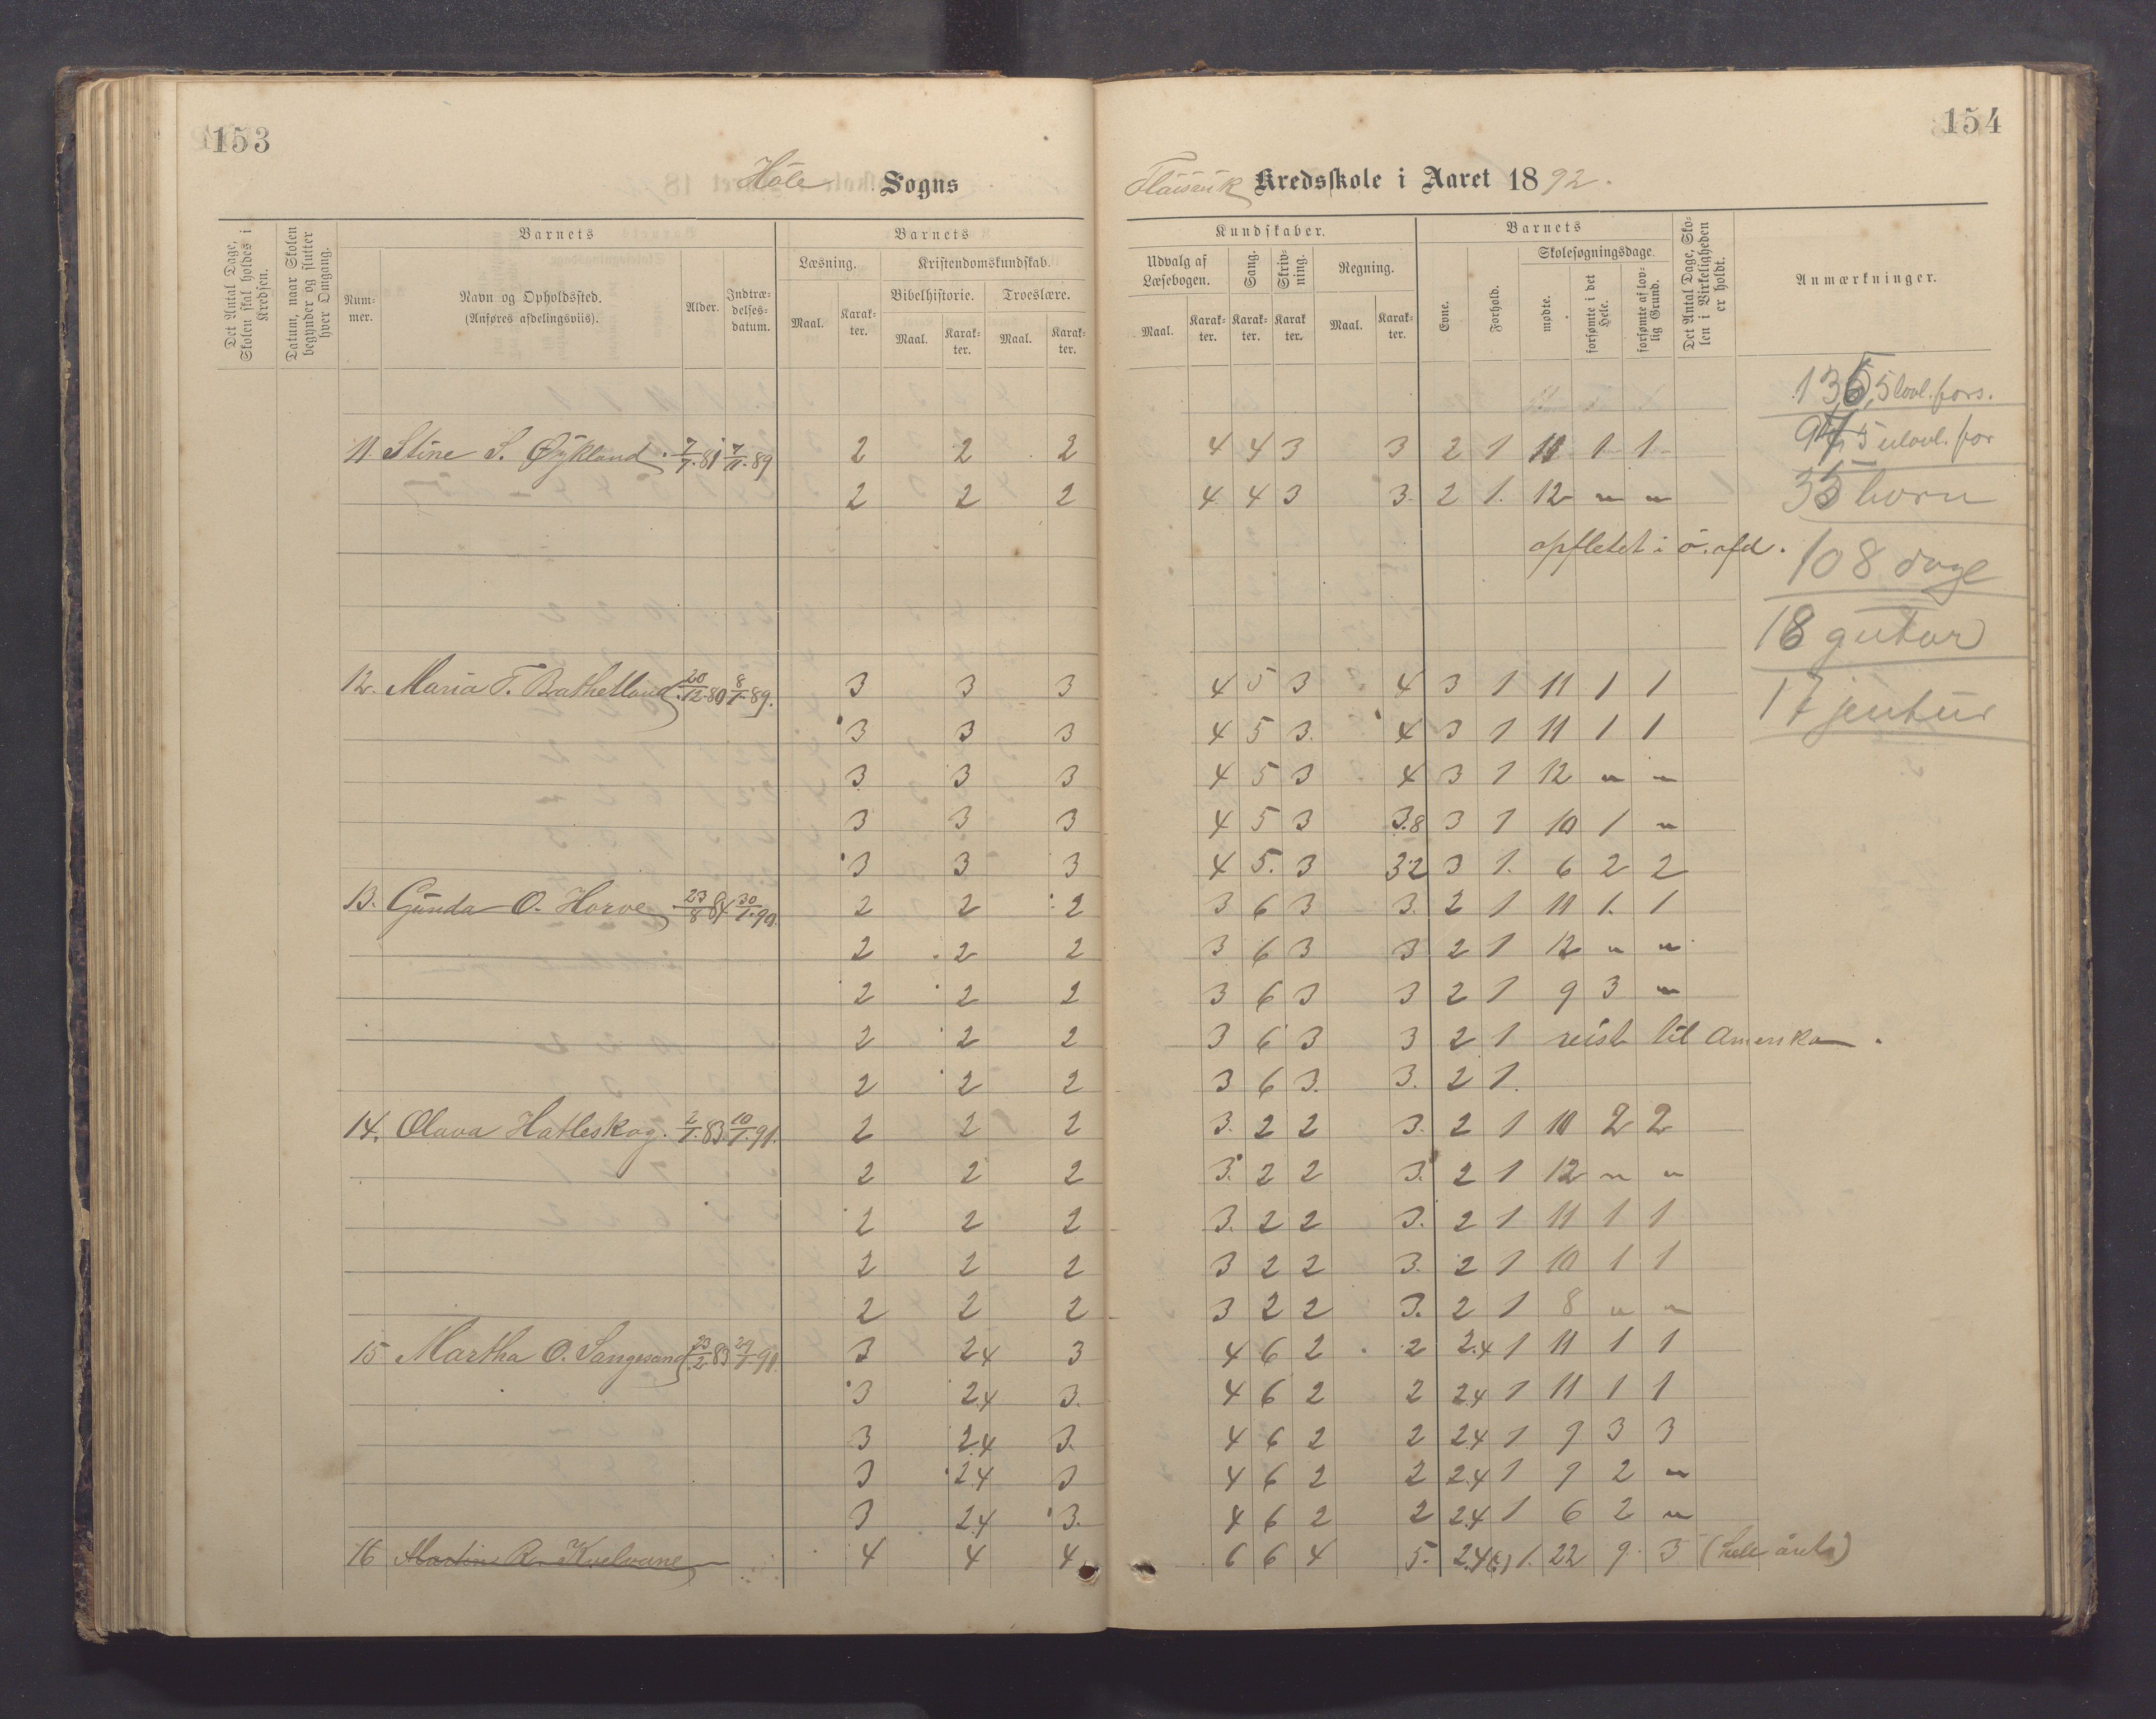 153
154
Høle Sogns
Kredsskole i Aaret 1892.
Det Antal Dage, Skolen skal holdes i Kredsen.
Datum, naar Skolen begynder og slutter hver Omgang.
Barnets
Num-mer.
Navn og Opholdssted. (Anføres afdelingsviis).
Alder.
Indtræ-delses-datum.
Barnets
Læsning.
Maal.
Karak-ter.
Kristendomskundskab.
Bibelhistorie.
Maal.
Karak-ter.
Troeslære.
Maal.
Karak-ter.
Kundskaber.
Udvalg af Læsebogen.
Maal.
Karak-ter.
Sang.
Karak-ter.
Skriv-ning.
Karak-ter.
Regning.
Maal.
Karak-ter.
Barnets
Evne.
Forhold.
Skolesøgningsdage.
mødte.
forsømte i det Hele.
forsømte af lov-lig Grund.
Det Antal Dage, Sko-len i Virkeligheden er holdt.
Anmærkninger.
5 lovl. fors.
11. Stine S. Øykland 7/7.81 7/11.89 2 2 2 4 4 3 3 2 1 11 1 1
5 ulovl. for
2 2 2 4 4 3 3 2 1. 12 " "
35 born
opflyttet i ø. afd.
108 dage
18 gutar
12. Maria T. Brathetland 20/12.80 8/1.89. 3 3 3 4 5 3 4 3 1 11 1 1
17 jentur
3 3 3 4 5 3. 4 3 1 11 1 1
3 3 3 4 5 3 4 3 1 12 " "
3 3 3 4 5 3 3.8 3 1 10 1 "
3 3 3 4 5. 3 3.2 3 1. 6 2 2
13. Gunda O. Horve 23/8 84 30/1.90. 2 2 2 3 6 3 3. 2 1 11 1. 1
2 2 2 3 6 3 3 2 1 12 " "
2 2 2 3 6 3 3 2 1 9 3 "
2 2 2 3 6 3 3 2 1 reist til Amerika.
2 2 2 3 6 3. 3. 2 1.
14. Olava Hatleskog. 2/1.83 10/1.91. 2 2 2 3. 2 2 3. 2 1 10 2 2
2 2 2 3. 2 2 3. 2 1 12 " "
2 2 2 3. 2 2 3. 2 1 11 1 1
2 2 2 3 2 2 3. 2 1 10 1 1
2 2 2 3 2 2 3. 2 1 8 " "
15 Martha O. Sangesand 23/2.83 3 2.4 3 4 6 2 2 2.4 1 11 1 1
3 2.4 3. 4 6 2 2 2.4 1 11 1 1
3 2.4 3. 4 6 2 2 2.4 1 9 3 3
3 2.4 3 4 6 2 2 2.4 1 9 2 "
3 2.4 3. 4 6 2 2 2.4 1 6 2 "
16 Martin R. Kvelvane 4 4 4 6 6 4 5. 2.4 1. 22 9. 3 (hele året)